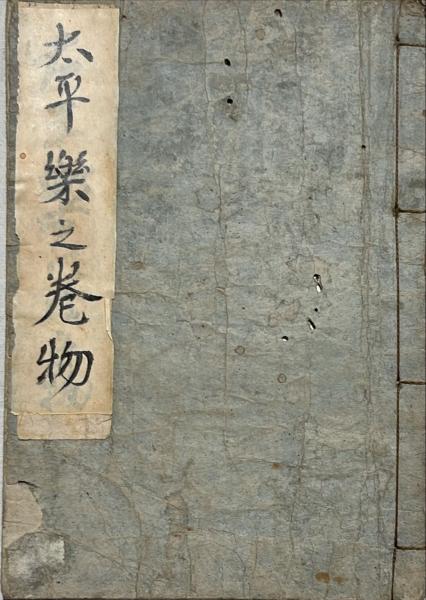 太平樂之巻物